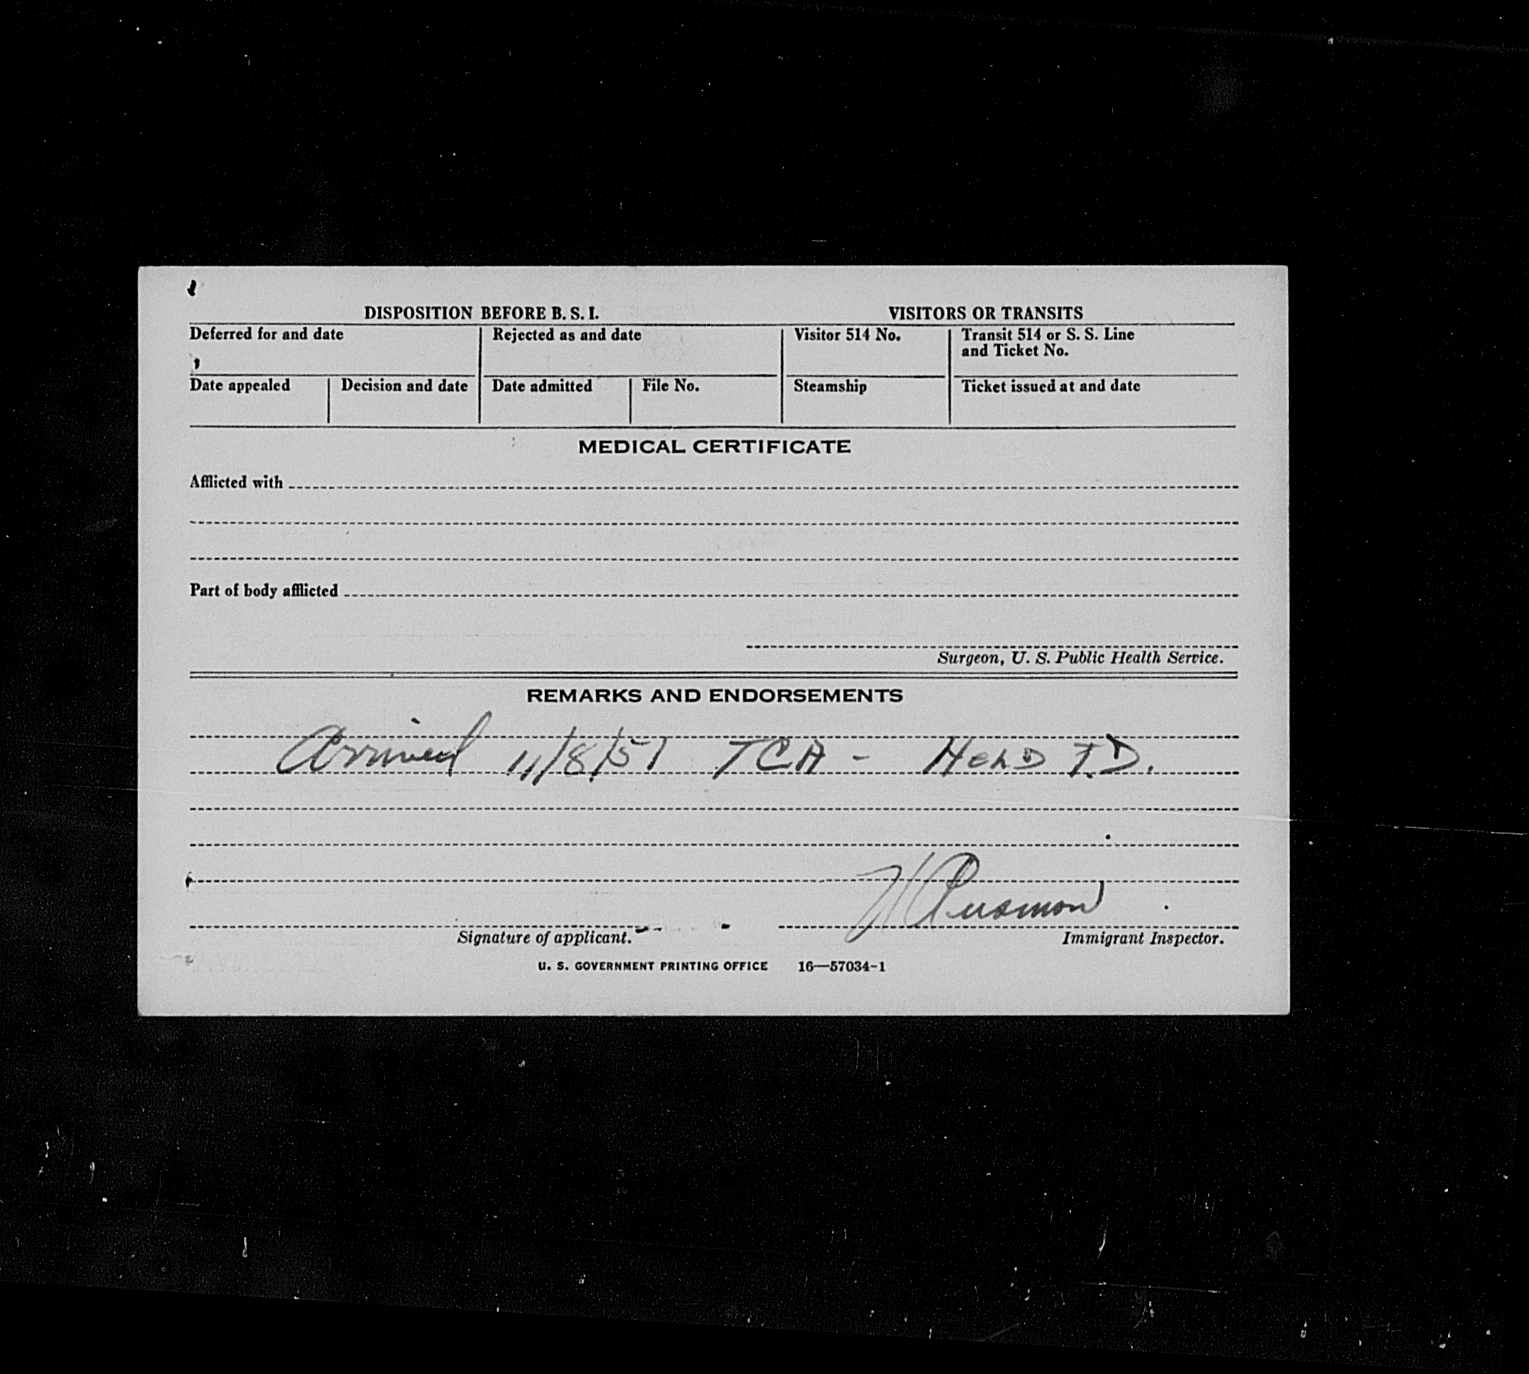 DISPOSITION BEFORE B. S. I.
VISITORS OR TRANSITS
Deferred for and date
Rejected as and date
Visitor 514 No.
Transit 514 or S. S. Line
and Ticket No.
Date appealed
Decision and date
Date admitted
File No.
Steamship
Ticket issued at and date
MEDICAL CERTIFICATE
Afflicted with
Part of body afflicted
Surgeon, U. S. Public Health Service.
REMARKS AND ENDORSEMENTS
Arrived 11/8/51 TCA - HELD T.D.
Signature of applicant.
Immigrant Inspector.
U. S. GOVERNMENT PRINTING OFFICE 16—57034-1